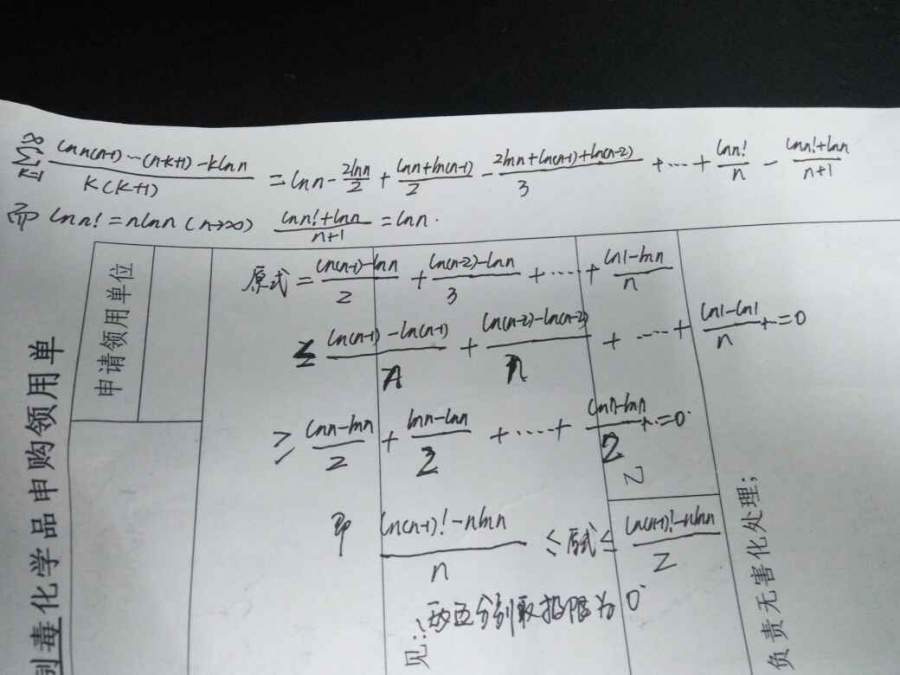 ∑_{k=1}^{∞} (ln n(n-1)…(n-k+1) - k ln n)/(k(k+1)) = ln n - 2ln n/2 + (ln n + ln(n-1))/2 - (2ln n + ln(n-1) + ln(n-2))/3 + … + ln n!/n - (ln n! + ln n)/(n+1)
而 ln n! = n ln n (n→∞) (ln n! + ln n)/(n+1) = ln n.
原式 = (ln(n-1) - ln n)/2 + (ln(n-2) - ln n)/3 + … + (ln1 - ln n)/n
≤ (ln(n-1) - ln(n-1))/n + (ln(n-2) - ln(n-2))/n + … + (ln1 - ln1)/n + … = 0
≥ (ln n - ln n)/2 + (ln n - ln n)/2 + … + (ln n - ln n)/2 + … = 0.
即 (ln(n-1)! - n ln n)/n ≤ 原式 ≤ (ln(n-1)! - n ln n)/2
分别取极限为 0
制毒化学品申购领用单
申请领用单位
见:
负责无害化处理;